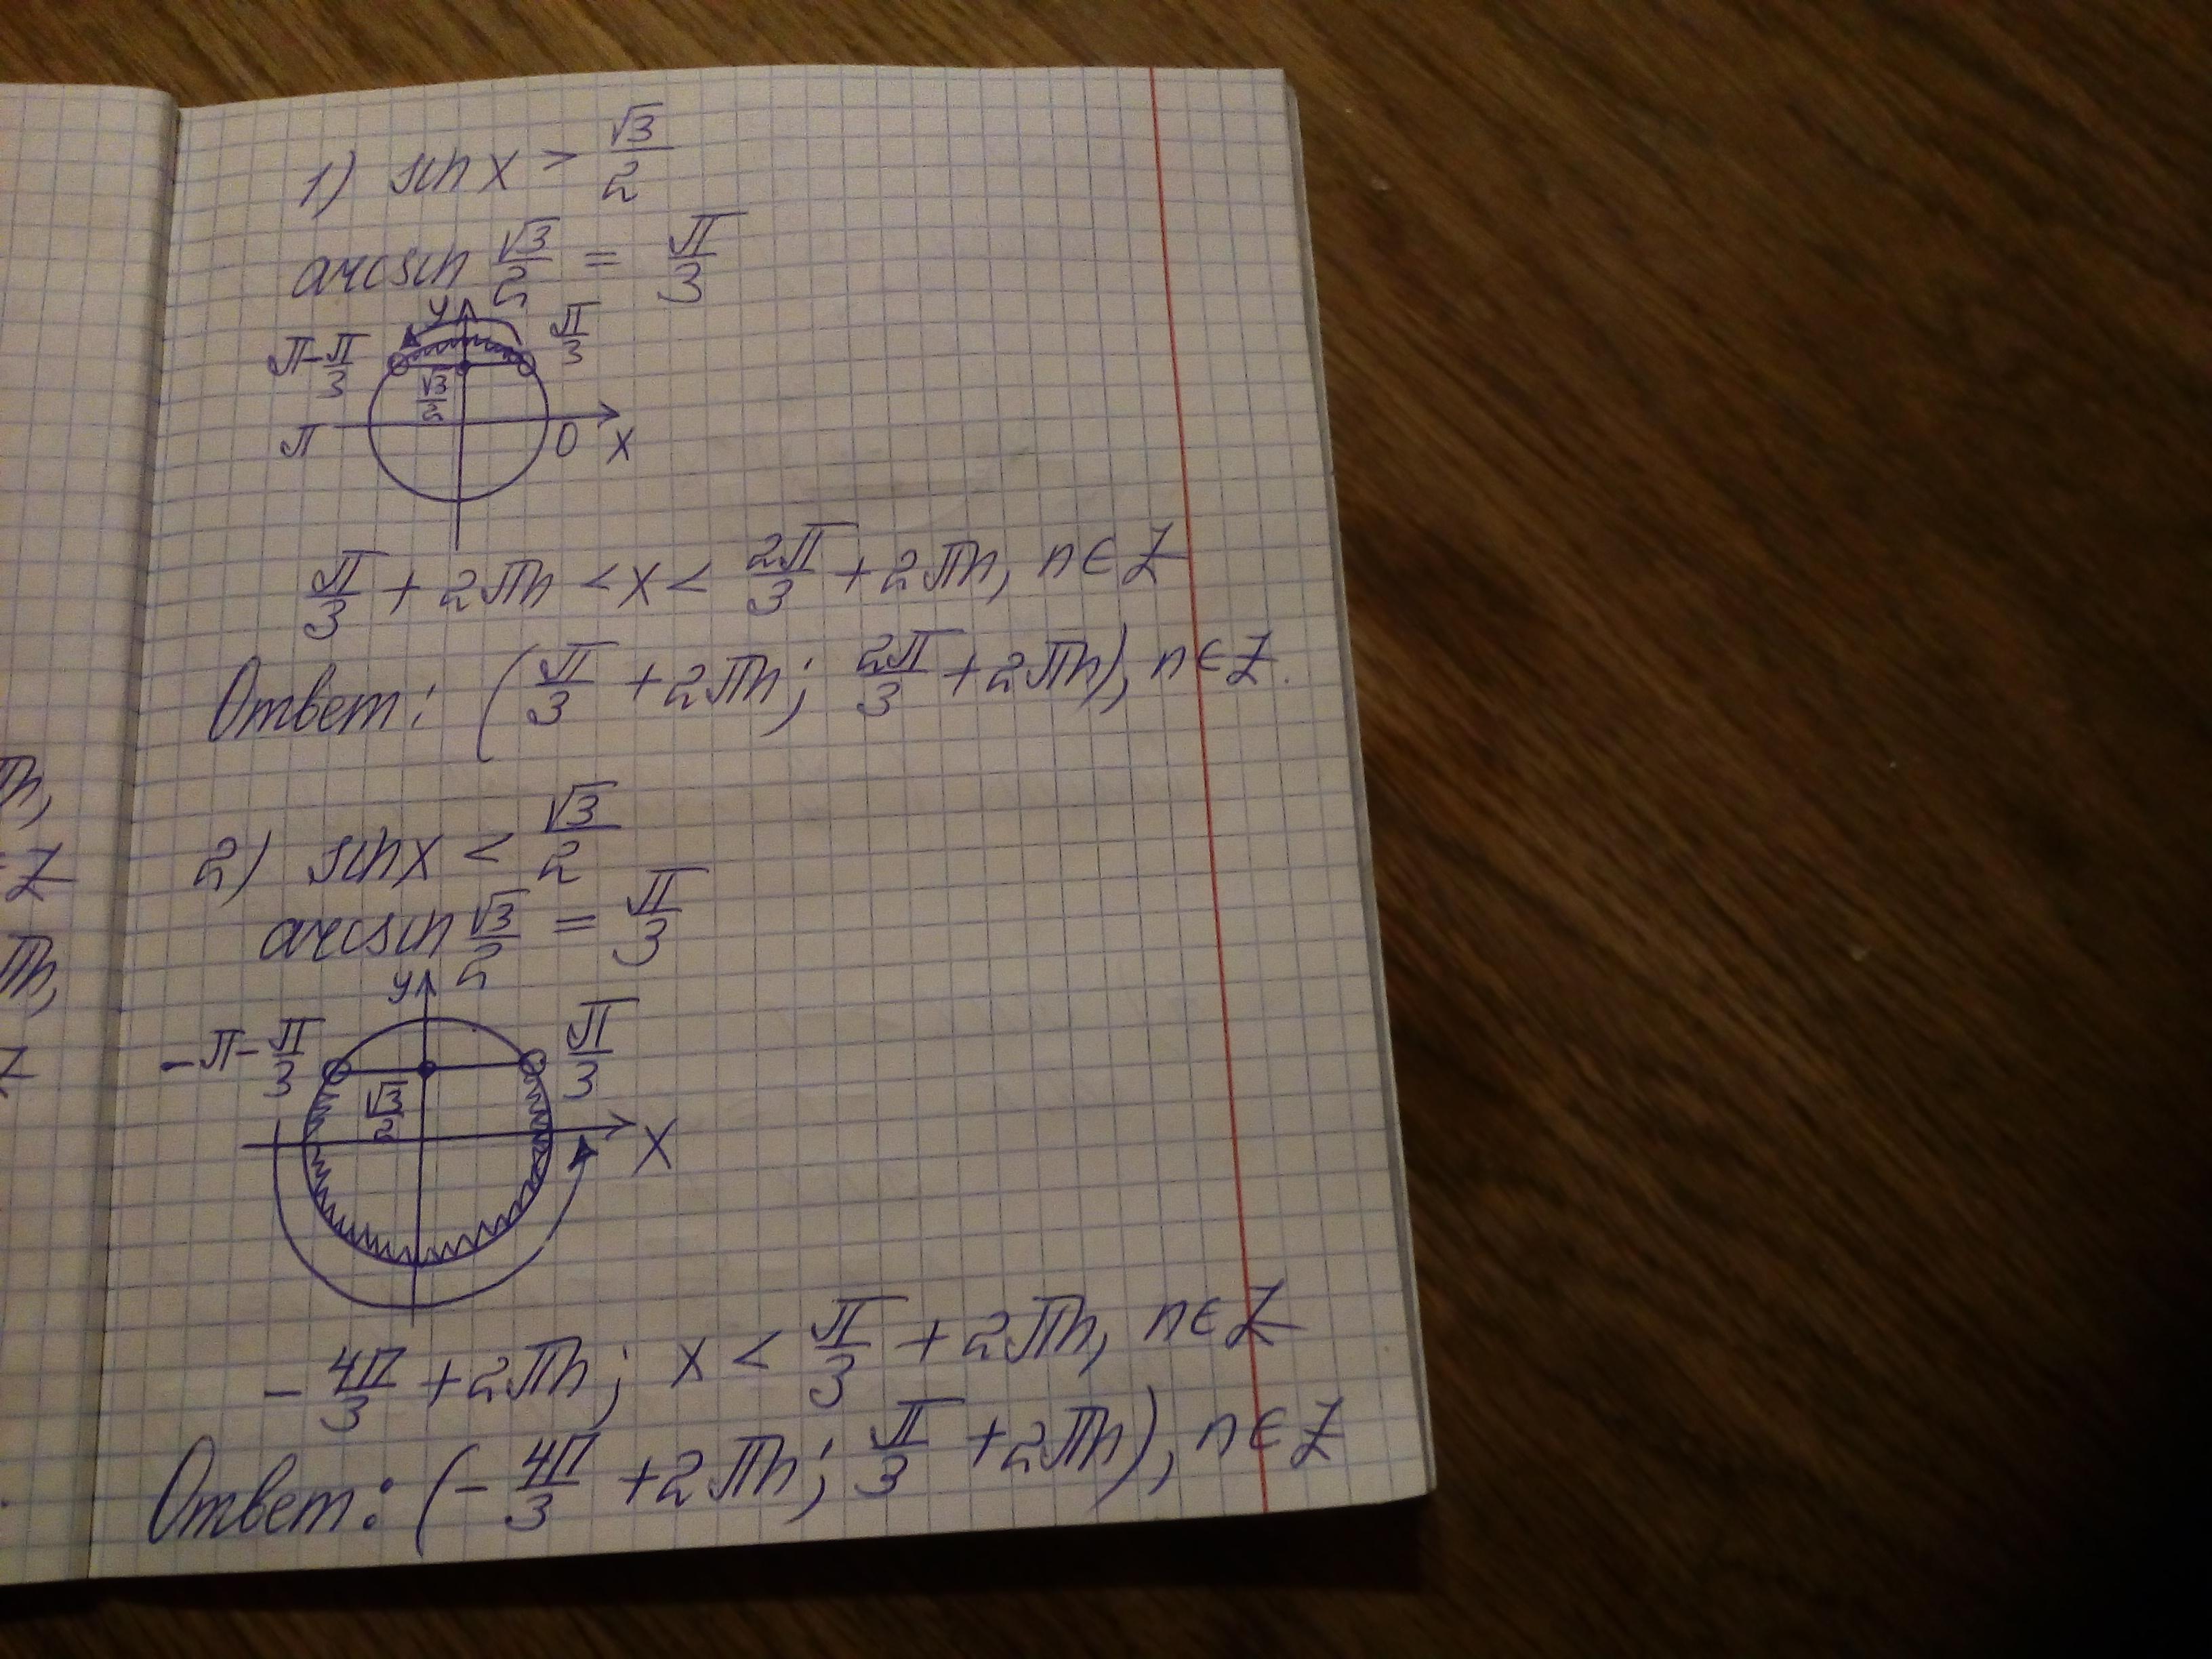 1) sin x > √3/2
arcsin √3/2 = π/3
y
π - π/3
π/3
√3/2
π
0
x
π/3 + 2πn < x < 2π/3 + 2πn, n ∈ Z
Ответ: (π/3 + 2πn; 2π/3 + 2πn), n ∈ Z.
πn,
Z
πn,
Z
2) sin x < √3/2
arcsin √3/2 = π/3
y
-π - π/3
π/3
√3/2
x
- 4π/3 + 2πn; x < π/3 + 2πn, n ∈ Z
Ответ: (- 4π/3 + 2πn; π/3 + 2πn), n ∈ Z